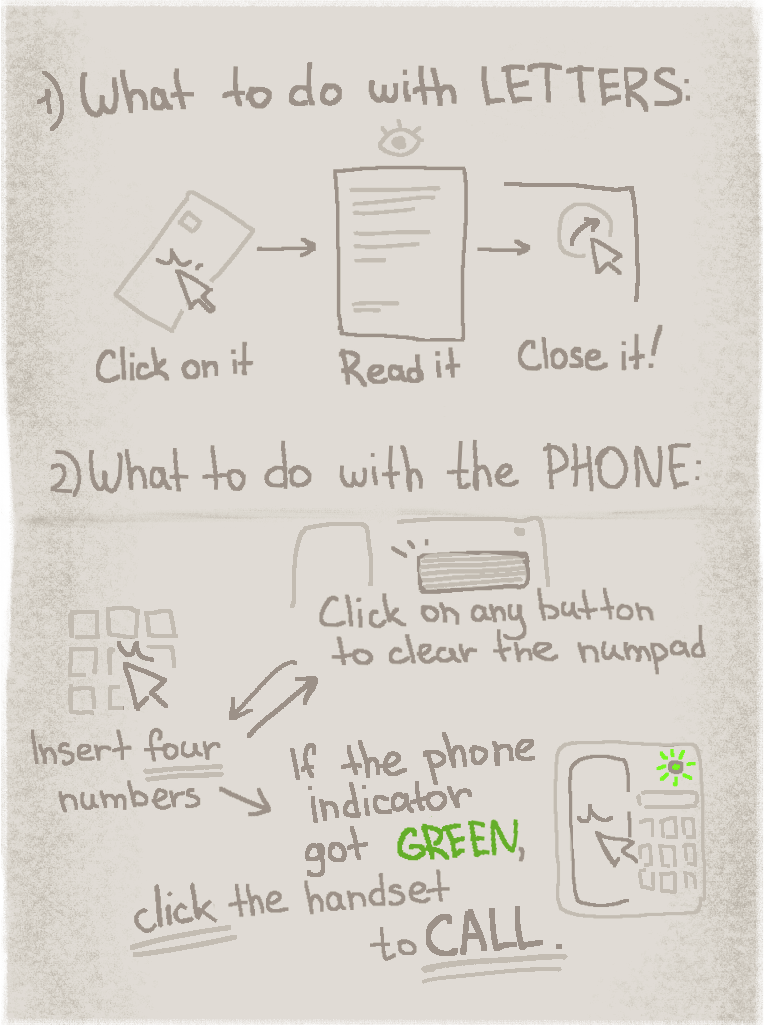 1) What to do with LETTERS:
Click on it
Read it
Close it!
2) What to do with the PHONE:
Click on any button
to clear the numpad
Insert four
numbers
If the phone
indicator
got GREEN,
click the handset
to CALL.